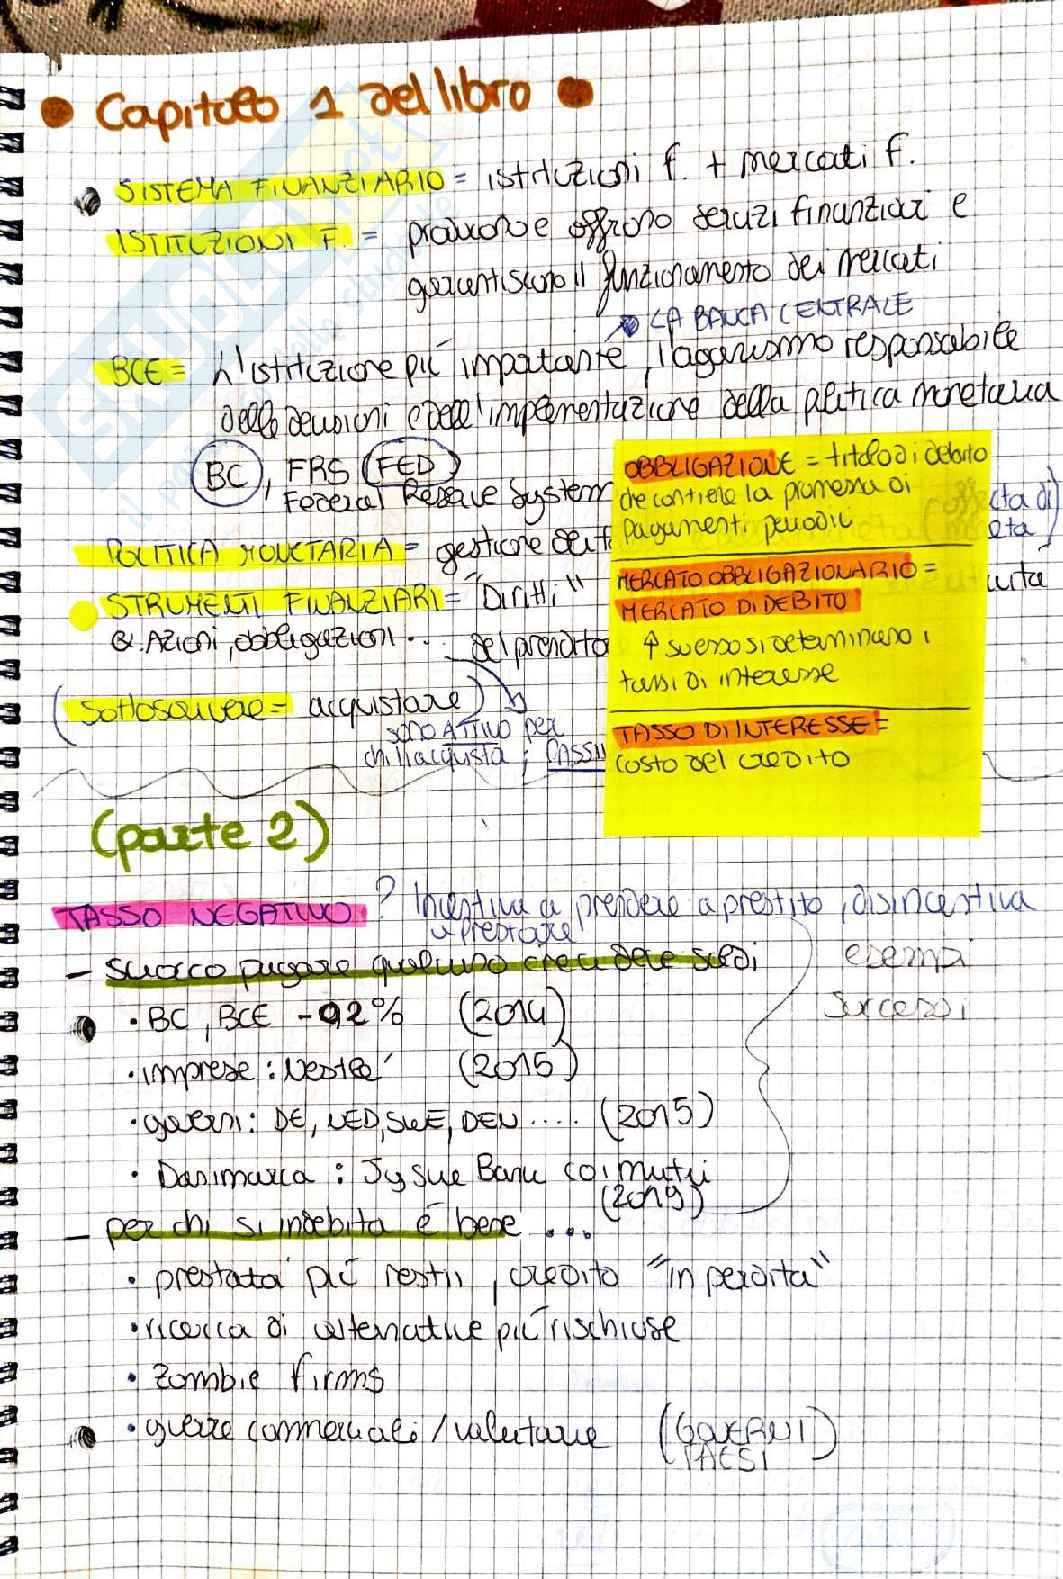 • Capitolo 1 del libro •
SISTEMA FINANZIARIO = istituzioni f. + mercati f.
ISTITUZIONI F. = offrono servizi finanziari e
garantiscono il funzionamento dei mercati
LA BANCA CENTRALE
BCE = L'istituzione più importante, l'organismo responsabile
delle decisioni e dell'implementazione della politica monetaria
BC, FRS (FED)
Federal Reserve System
POLITICA MONETARIA = gestione dell'
STRUMENTI FINANZIARI = "Diritti"
Azioni, obbligazioni ... del prendito
(Sottoscrivere = acquistare)
sono ATTIVO per
chi l'acquista; PASSI
OBBLIGAZIONE = titolo di debito
che contiene la promessa di
pagamenti periodici
MERCATO OBBLIGAZIONARIO =
MERCATO DI DEBITO
↑ su esso si determinano i
tassi di interesse
TASSO DI INTERESSE =
costo del credito
ta di)
eta)
(parte 2)
TASSO NEGATIVO ? Incentiva a prendere a prestito, disincentiva
a prestare
- suocco pagare qualcuno a cui dare soldi
esempi
successi
• BC, BCE -0,2% (2014)
• imprese: Nestlé (2015)
• governi: DE, NED, SWE, DEN .... (2015)
• Danimarca: Jyske Bank coi mutui
(2019)
- per chi si indebita è bene ...
• prestata più restii, credito "in perdita"
• ricerca di alternative più rischiose
• zombie firms
• guerre commerciali / valutarie (GOVERNI)
PAESI